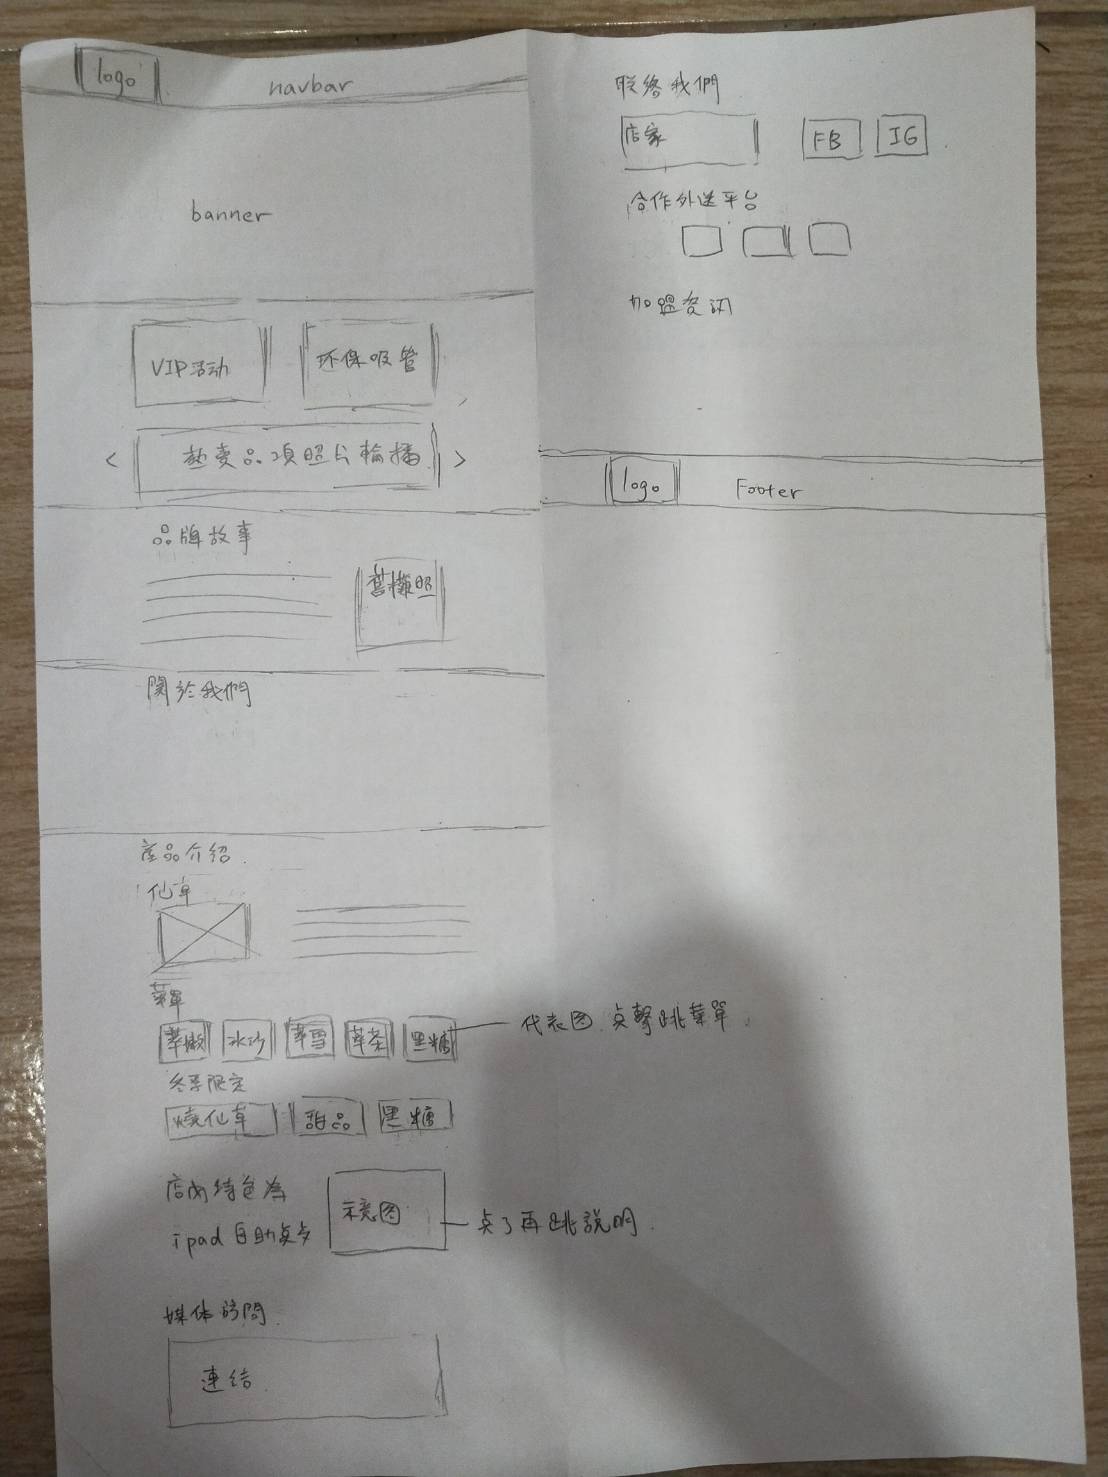 logo
navbar
banner
VIP活动
环保吸管
< 热卖品项照片輪播 >
品牌故事
舊攤照
関於我們
產品介紹
仙草
菜單
冰沙
黑糖
代表图 点擊跳菜單
冬季限定
燒仙草
甜品
黑糖
店內特色為
ipad自助点
示意图
点了再跳說明
媒体訪問
連结
联络我們
店家
FB
IG
合作外送平台
加盟资讯
logo
Footer